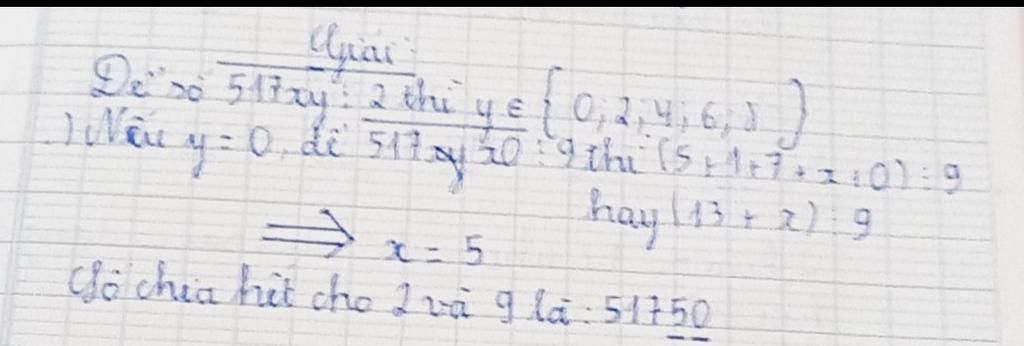 Giải:
Để số 517xy ⋮ 2 thì y ∈ { 0; 2; 4; 6; 8 }
.) Nếu y = 0, để 517x0 ⋮ 9 thì (5 + 1 + 7 + x + 0) ⋮ 9
hay (13 + x) ⋮ 9
⟹ x = 5
Số chia hết cho 2 và 9 là: 51750